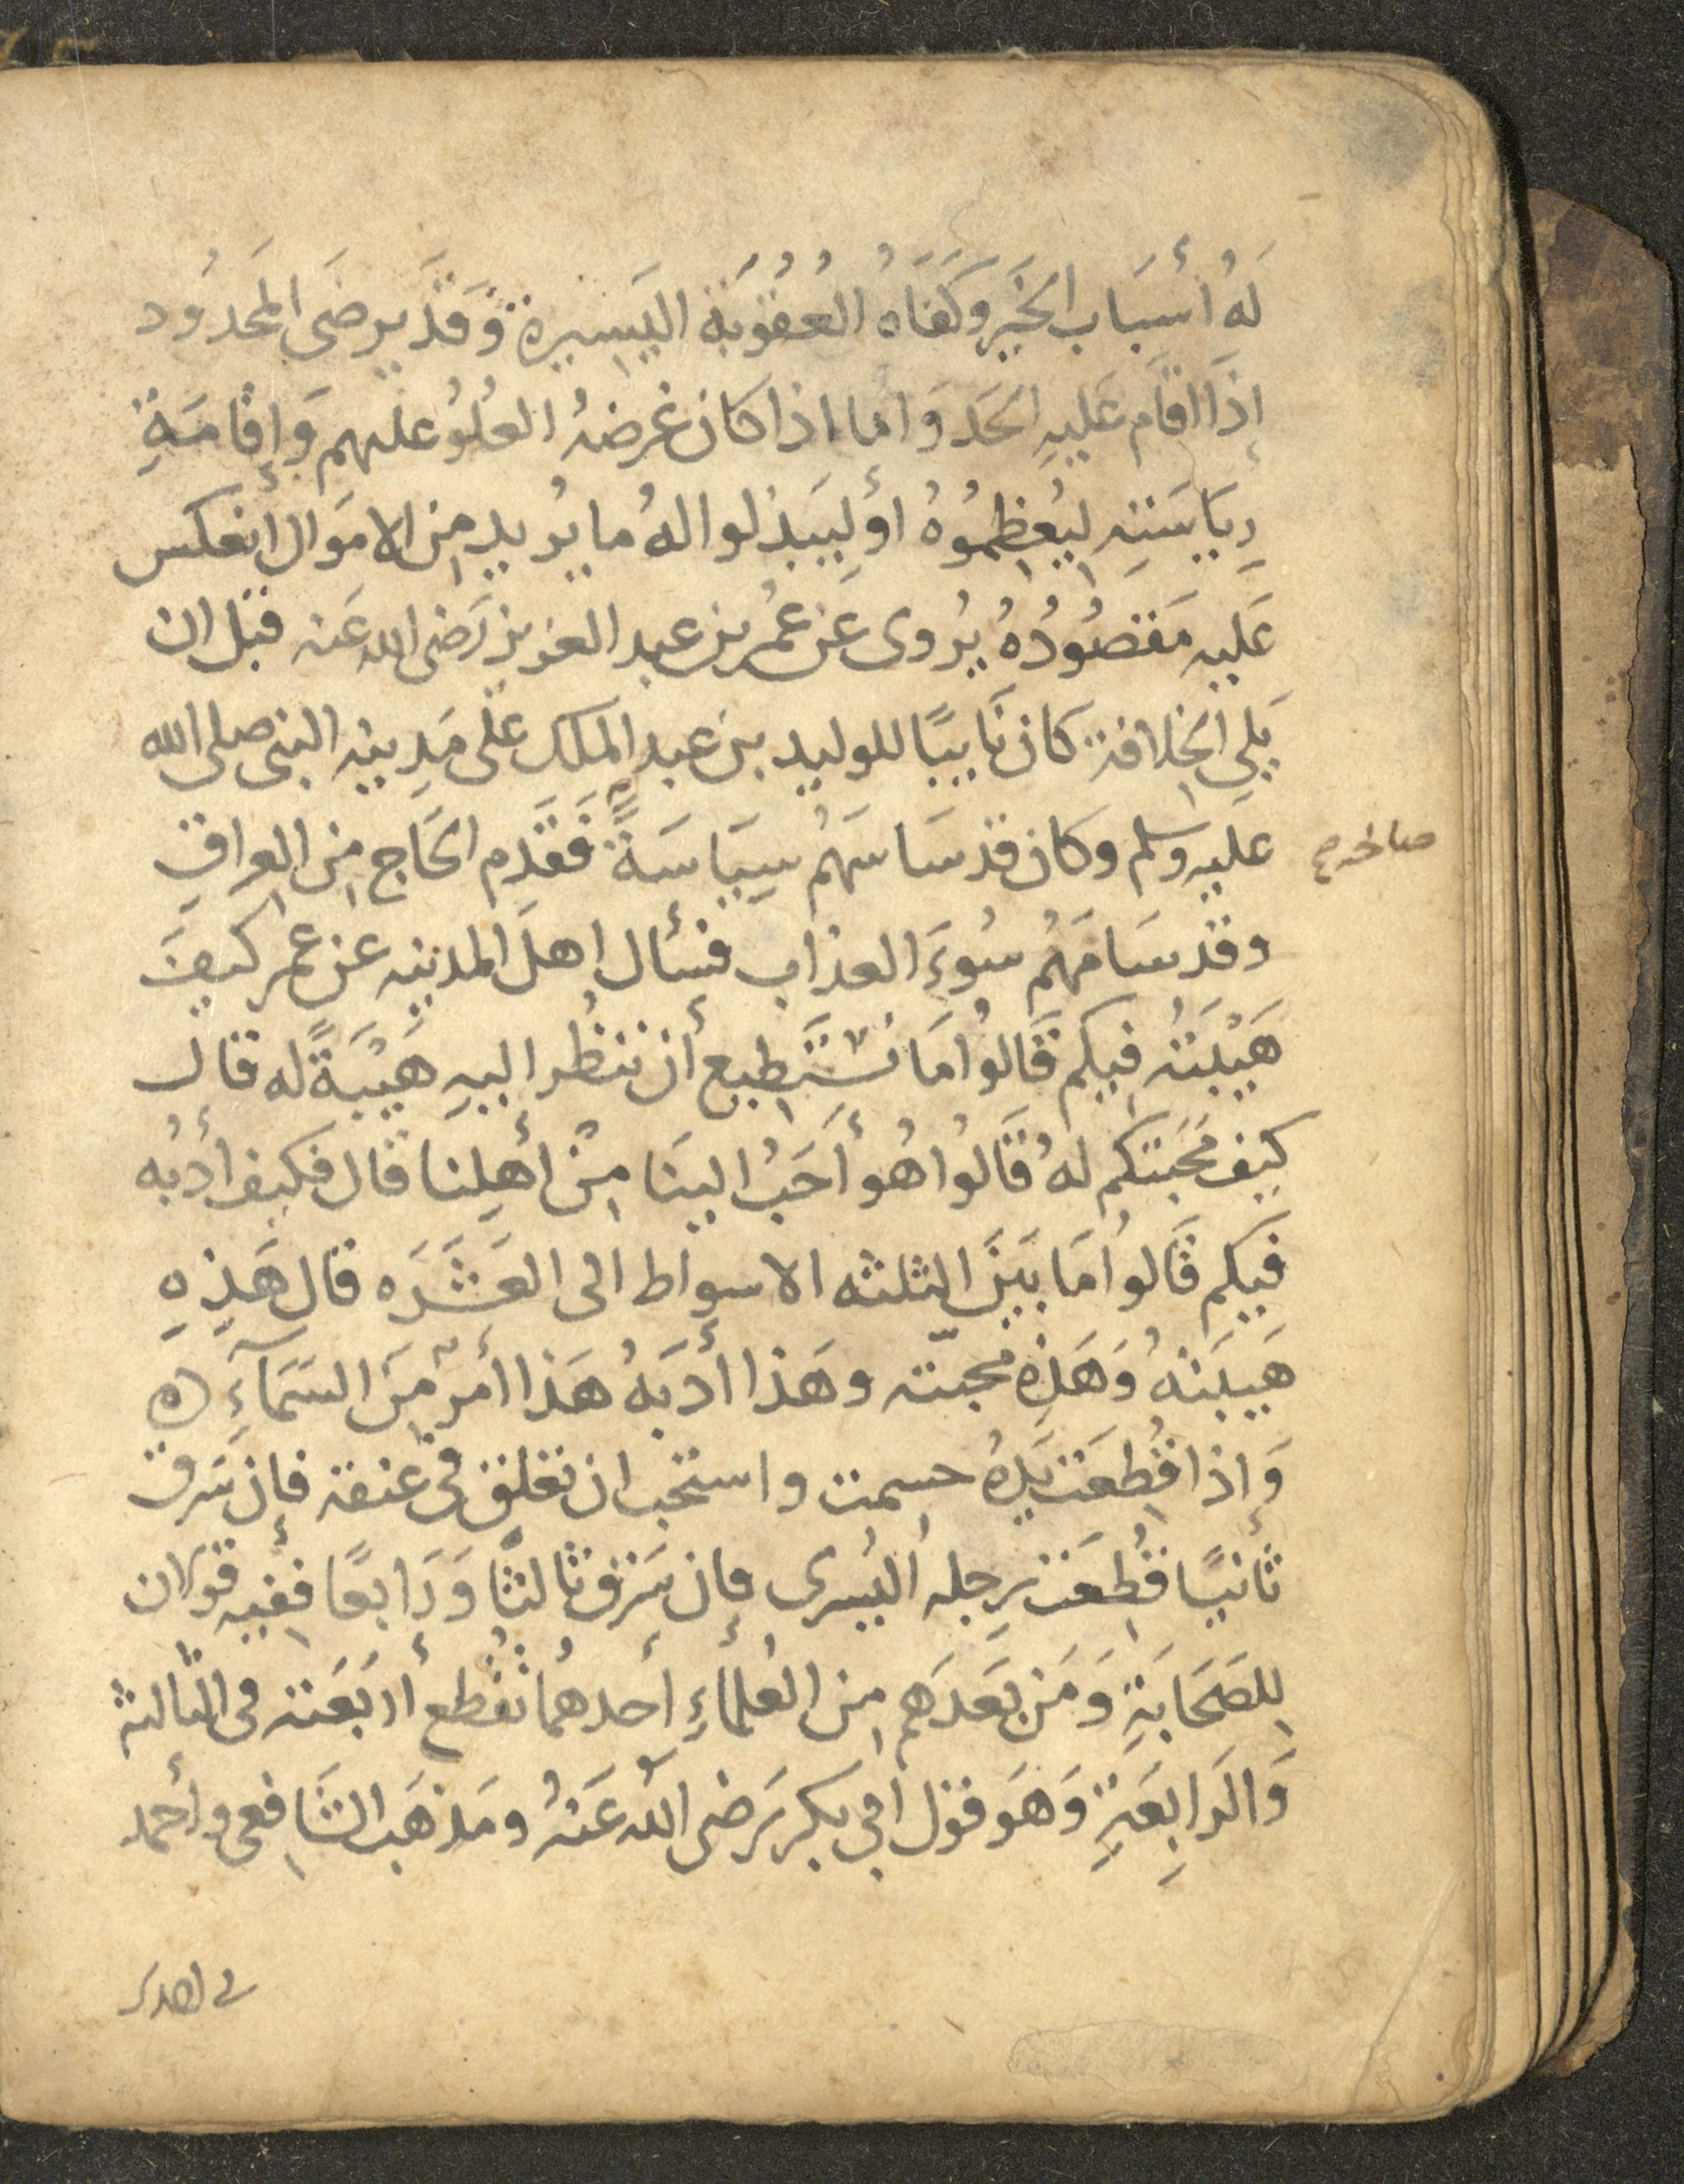 لَهُ أسبَاب الخَير وَكَفَاهُ العُقُوبَة اليَسيرة وَقَد يرضَى المَحدُود
إذَا اقَام عَليهِ الحَد وَاما اذا كان غرضهُ العُلُو عليهم وَإقامَةِ
رِيَاسَتِه لِيُعظِمُوهُ أو لِيَبذلوا لهُ ما يُريد مِن الاموَال انعكس
عَليه مَقصُودُهُ يُروى عَن عُمر بن عبد العزيز رَضى الله عَنه قبل ان
يَلِي الخِلافة كان نَايبًا للوليد بن عبد المَلك عَلى مَدِينه النبى صلى الله
عليه وسلم وكان قد سَاسَهُم سِيَاسَةً فَقَدِم الحَاج مِن العِراقِ
صالحة صح
وقد سَامَهُم سُوءَ العذاب فسأل اهلَ المدينه عن عمر كيفَ
هَيْبَتُه فيكم قَالُوا مَا نَستَطِيع أن ننظُر اليهِ هَيْبَةً له قال
كيف مَحَبتكم لهُ قَالُوا هُو أحَبُ اليَنا مِنْ أهلِنا قال فكيف أدبُه
فيكم قَالوا مَا بَينَ الثلثه الاسواط الى العَشَرَه قال هَذِهِ
هَيبَتهُ وَهَذِه محبّته وهَذا أدَبهُ هَذا أمرٌ مِنَ السَمَآءِ ه
وَإذا قُطِعَت يَدهُ حسمت واستحب ان تعلق فى عنقه فإن سَرق
ثانيًا قُطِعَت رِجله اليُسرى فإن سَرَق ثالثًا وَرَابعًا ففِيه قولان
لِلصَحَابَةِ وَمَن بَعدَهم مِن العُلمَاءِ أحدهُما تُقطع أربَعَته فى الثالثة
وَالرَابِعَةِ وَهَو قول ابى بكر رَضى الله عَنهُ ومَذهَب الشَافِعى وأحمد
فى احدى